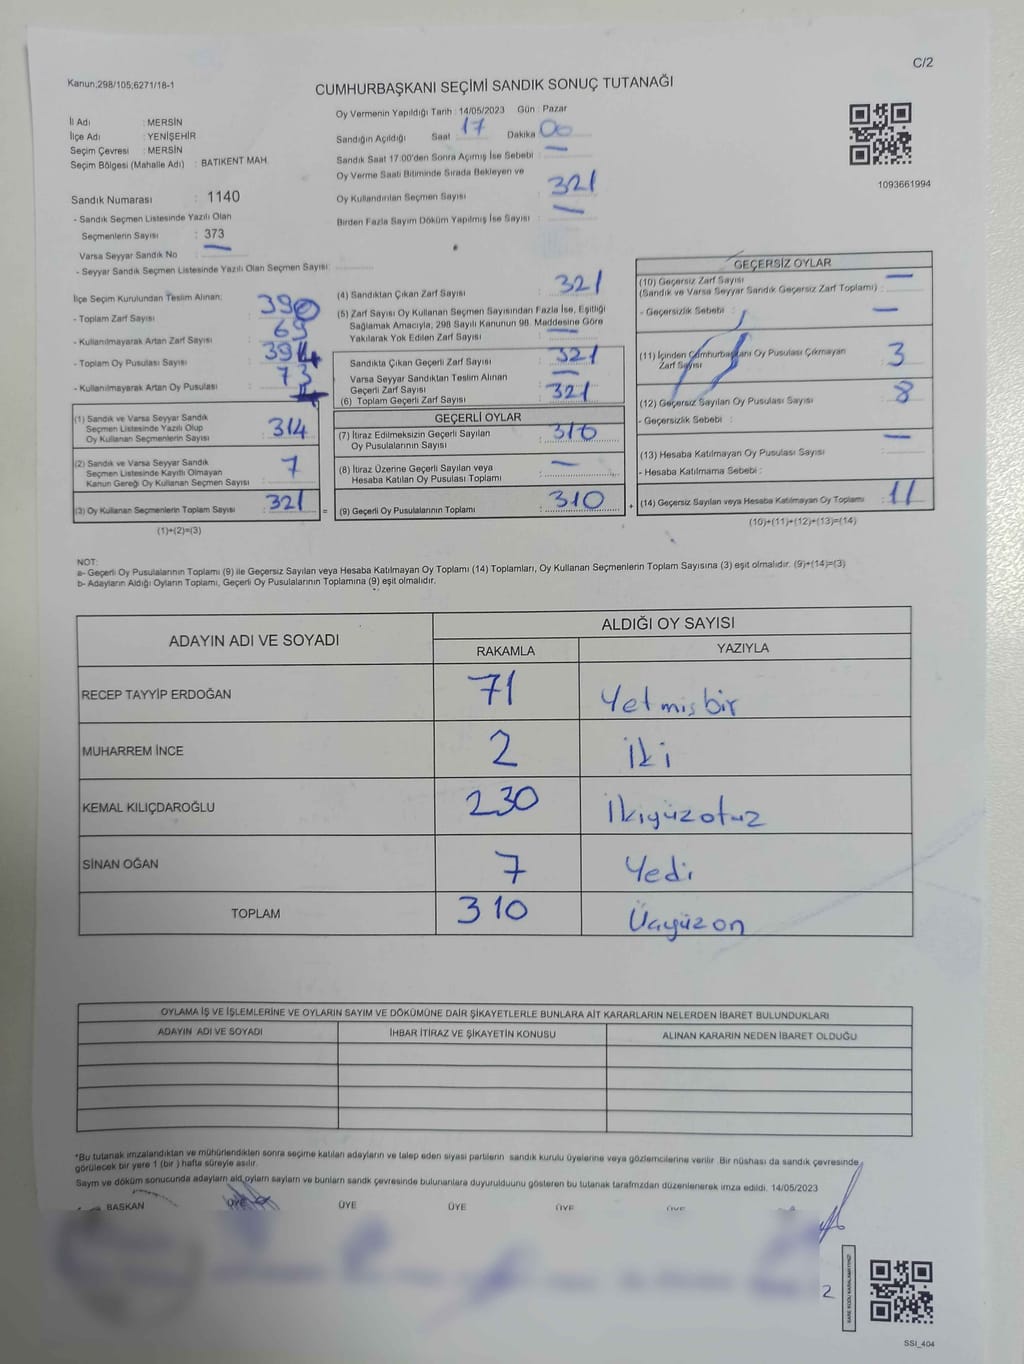 C/2
Kanun;298/105;6271/18-1
CUMHURBAŞKANI SEÇİMİ SANDIK SONUÇ TUTANAĞI
İl Adı : MERSİN
İlçe Adı : YENİŞEHİR
Seçim Çevresi : MERSİN
Seçim Bölgesi (Mahalle Adı) : BATIKENT MAH.
Oy Vermenin Yapıldığı Tarih : 14/05/2023 Gün : Pazar
Sandığın Açıldığı Saat 17 Dakika 00
Sandık Saat 17:00'den Sonra Açılmış İse Sebebi : —
Oy Verme Saati Bitiminde Sırada Bekleyen ve
Oy Kullandırılan Seçmen Sayısı : 321
Birden Fazla Sayım Döküm Yapılmış İse Sayısı : —
1093661994
Sandık Numarası : 1140
- Sandık Seçmen Listesinde Yazılı Olan
Seçmenlerin Sayısı : 373
Varsa Seyyar Sandık No —
- Seyyar Sandık Seçmen Listesinde Yazılı Olan Seçmen Sayısı:
İlçe Seçim Kurulundan Teslim Alınan:
- Toplam Zarf Sayısı : 390
- Kullanılmayarak Artan Zarf Sayısı : 69
- Toplam Oy Pusulası Sayısı : 394
- Kullanılmayarak Artan Oy Pusulası : 73
(1) Sandık ve Varsa Seyyar Sandık
Seçmen Listesinde Yazılı Olup
Oy Kullanan Seçmenlerin Sayısı : 314
(2) Sandık ve Varsa Seyyar Sandık
Seçmen Listesinde Kayıtlı Olmayan
Kanun Gereği Oy Kullanan Seçmen Sayısı : 7
(3) Oy Kullanan Seçmenlerin Toplam Sayısı : 321 =
(1)+(2)=(3)
(4) Sandıktan Çıkan Zarf Sayısı : 321
(5) Zarf Sayısı Oy Kullanan Seçmen Sayısından Fazla İse, Eşitliği
Sağlamak Amacıyla, 298 Sayılı Kanunun 98. Maddesine Göre
Yakılarak Yok Edilen Zarf Sayısı : —
Sandıkta Çıkan Geçerli Zarf Sayısı : 321
Varsa Seyyar Sandıktan Teslim Alınan
Geçerli Zarf Sayısı : —
(6) Toplam Geçerli Zarf Sayısı : 321
GEÇERLİ OYLAR
(7) İtiraz Edilmeksizin Geçerli Sayılan
Oy Pusulalarının Sayısı : 310
(8) İtiraz Üzerine Geçerli Sayılan veya
Hesaba Katılan Oy Pusulası Toplamı : —
(9) Geçerli Oy Pusulalarının Toplamı : 310 +
GEÇERSİZ OYLAR
(10) Geçersiz Zarf Sayısı
(Sandık ve Varsa Seyyar Sandık Geçersiz Zarf Toplamı) : —
- Geçersizlik Sebebi : —
(11) İçinden Cumhurbaşkanı Oy Pusulası Çıkmayan
Zarf Sayısı : 3
(12) Geçersiz Sayılan Oy Pusulası Sayısı : 8
- Geçersizlik Sebebi :
(13) Hesaba Katılmayan Oy Pusulası Sayısı : —
- Hesaba Katılmama Sebebi :
(14) Geçersiz Sayılan veya Hesaba Katılmayan Oy Toplamı : 11
(10)+(11)+(12)+(13)=(14)
NOT:
a- Geçerli Oy Pusulalarının Toplamı (9) ile Geçersiz Sayılan veya Hesaba Katılmayan Oy Toplamı (14) Toplamları, Oy Kullanan Seçmenlerin Toplam Sayısına (3) eşit olmalıdır. (9)+(14)=(3)
b- Adayların Aldığı Oyların Toplamı, Geçerli Oy Pusulalarının Toplamına (9) eşit olmalıdır.
ADAYIN ADI VE SOYADI ALDIĞI OY SAYISI
RAKAMLA YAZIYLA
RECEP TAYYİP ERDOĞAN 71 Yetmişbir
MUHARREM İNCE 2 İki
KEMAL KILIÇDAROĞLU 230 İkiyüzotuz
SİNAN OĞAN 7 Yedi
TOPLAM 310 Üçyüzon
OYLAMA İŞ VE İŞLEMLERİNE VE OYLARIN SAYIM VE DÖKÜMÜNE DAİR ŞİKAYETLERLE BUNLARA AİT KARARLARIN NELERDEN İBARET BULUNDUKLARI
ADAYIN ADI VE SOYADI İHBAR İTİRAZ VE ŞİKAYETİN KONUSU ALINAN KARARIN NEDEN İBARET OLDUĞU
*Bu tutanak imzalandıktan ve mühürlendikten sonra seçime katılan adayların ve talep eden siyasi partilerin sandık kurulu üyelerine veya gözlemcilerine verilir. Bir nüshası da sandık çevresinde
görülecek bir yere 1 (bir ) hafta süreyle asılır.
Sayım ve döküm sonucunda adayların ald oyların sayları ve bunların sandk çevresinde bulunanlara duyurulduunu gösteren bu tutanak tarafmzdan düzenlenerek imza edildi. 14/05/2023
BAŞKAN ÜYE ÜYE ÜYE ÜYE ÜYE
2
SSI_404